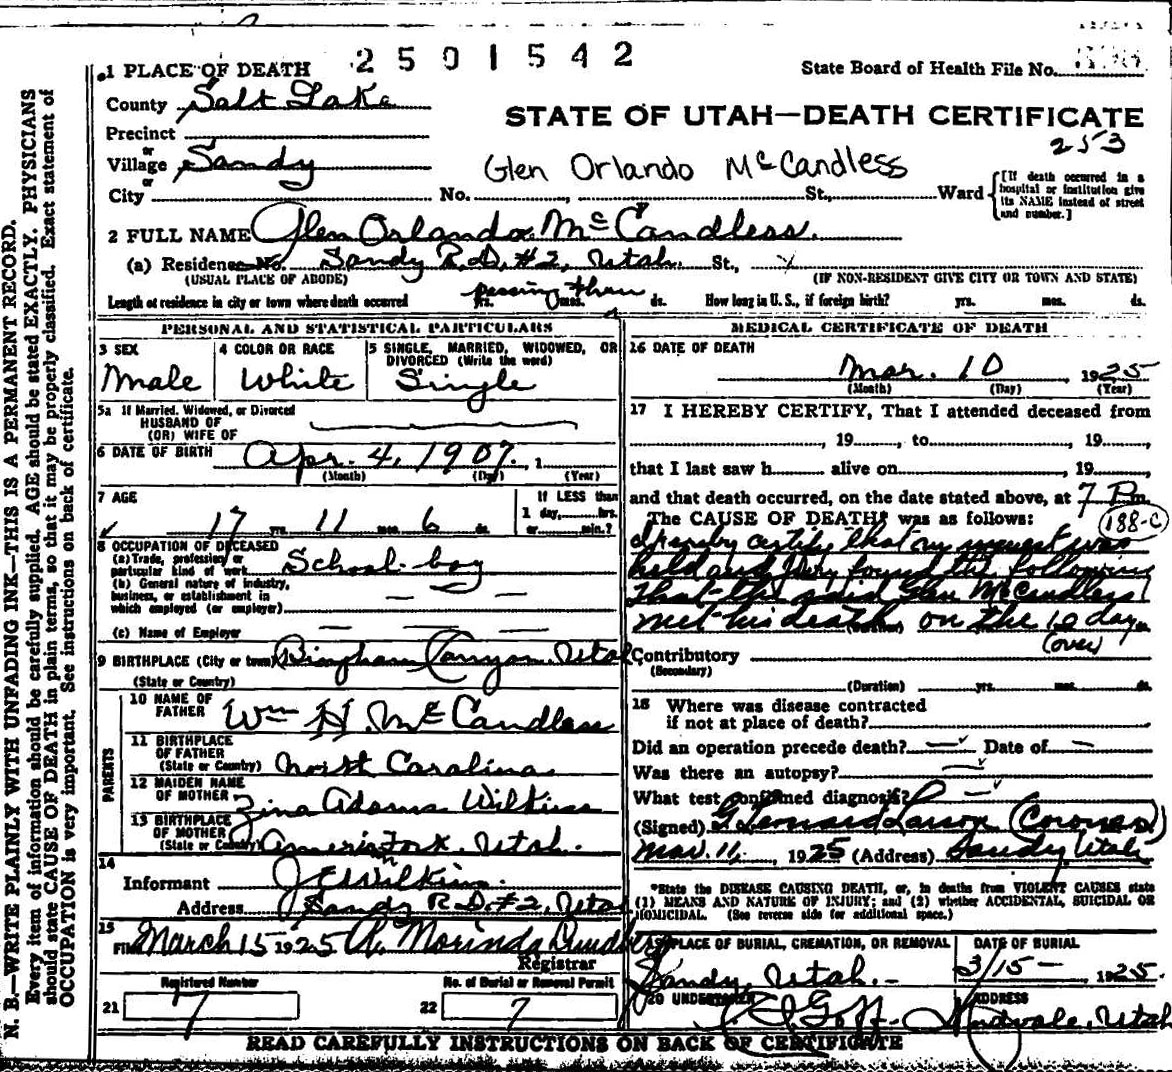 2501542
State Board of Health File No.
1 PLACE OF DEATH
County Salt Lake
STATE OF UTAH—DEATH CERTIFICATE
Precinct
253
or
Village Sandy
Glen Orlando McCandless
or
City No. St., Ward
[If death occurred in a hospital or institution give its NAME instead of street and number.]
2 FULL NAME Glen Orlando McCandless.
(a) Residence No. Sandy R.D. #2, Utah. St.,
(USUAL PLACE OF ABODE) (IF NON-RESIDENT GIVE CITY OR TOWN AND STATE)
Length of residence in city or town where death occurred yrs. passing thru mos. ds. How long in U. S., if foreign birth? yrs. mos. ds.
PERSONAL AND STATISTICAL PARTICULARS
3 SEX
Male
4 COLOR OR RACE
White
5 SINGLE, MARRIED, WIDOWED, OR
DIVORCED (Write the word)
Single
5a If Married, Widowed, or Divorced
HUSBAND OF
(OR) WIFE OF
6 DATE OF BIRTH Apr. 4, 1907. , 1
(Month) (Day) (Year)
7 AGE
17 yrs. 11 mos. 6 ds.
If LESS than
1 day, hrs.
or min.?
8 OCCUPATION OF DECEASED
(a) Trade, profession, or
particular kind of work School-boy
(b) General nature of industry,
business, or establishment in
which employed (or employer)
(c) Name of Employer
9 BIRTHPLACE (City or town) Bingham Canyon. Utah
(State or Country)
PARENTS
10 NAME OF
FATHER Wm H. McCandless
11 BIRTHPLACE
OF FATHER
(State or Country) North Carolina
12 MAIDEN NAME
OF MOTHER Zina Adams Wilkins
13 BIRTHPLACE
OF MOTHER
(State or Country) Ameri Fork, Utah.
14
Informant J E Wilkins.
Address Sandy R.D. #2, Utah
15
Filed March 15 1925 A. Morinda
Registrar
Registered Number
21 7
No. of Burial or Removal Permit
22 7
MEDICAL CERTIFICATE OF DEATH
16 DATE OF DEATH
Mar. 10 , 1925
(Month) (Day) (Year)
17 I HEREBY CERTIFY, That I attended deceased from
, 19 , to , 19 ,
that I last saw h alive on , 19 ,
and that death occurred, on the date stated above, at 7 P.m.
The CAUSE OF DEATH* was as follows: 188-C
I hereby certify that my inquest was
held and Jury found the following
that the said Glen McCandless
met his death on the 10 day
(Duration)
(over)
Contributory
(Secondary)
(Duration) yrs. mos. ds.
18 Where was disease contracted
if not at place of death?
Did an operation precede death? — Date of —
Was there an autopsy? —
What test confirmed diagnosis? —
(Signed) G Leonard Larson (Coroner) M.D.
Mar. 11, , 1925 (Address) Sandy, Utah
*State the DISEASE CAUSING DEATH, or, in deaths from VIOLENT CAUSES state
(1) MEANS AND NATURE OF INJURY; and (2) whether ACCIDENTAL, SUICIDAL OR
HOMICIDAL. (See reverse side for additional space.)
19 PLACE OF BURIAL, CREMATION, OR REMOVAL
Sandy, Utah.
DATE OF BURIAL
3/15 — 1925.
20 UNDERTAKER
Goff
ADDRESS
Midvale, Utah
READ CAREFULLY INSTRUCTIONS ON BACK OF CERTIFICATE
N. B.—WRITE PLAINLY WITH UNFADING INK—THIS IS A PERMANENT RECORD.
Every item of information should be carefully supplied. AGE should be stated EXACTLY. PHYSICIANS
should state CAUSE OF DEATH in plain terms, so that it may be properly classified. Exact statement of
OCCUPATION is very important. See instructions on back of certificate.